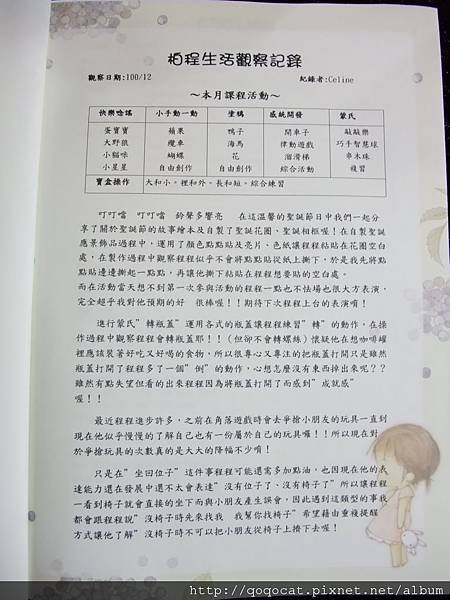 柏程生活觀察記錄
觀察日期:100/12 紀錄者:Celine
～本月課程活動～
快樂唸謠 小手動一動 塗鴉 感統開發 蒙氏
蛋寶寶 蘋果 鴨子 開車子 敲敲樂
大野狼 纜車 海馬 律動遊戲 巧手智慧球
小貓咪 蝴蝶 花 溜滑梯 串木珠
小星星 自由創作 自由創作 綜合活動 複習
寶盒操作 大和小。裡和外。長和短。綜合練習
叮叮噹 叮叮噹 鈴聲多響亮 在這溫馨的聖誕節日中我們一起分
享了關於聖誕節的故事繪本及自製了聖誕花圈、聖誕相框喔！在自製聖誕
應景飾品過程中，運用了顏色點點貼及亮片、色紙讓程程粘貼在花圈空白
處，在製作過程中觀察程程似乎不會將點點貼從紙上撕下，於是我先將點
點貼邊邊撕起一點點，再讓他撕下粘貼在程程想要貼的空白處。
而在活動當天想不到第一次參與活動的程程一點也不怯場也很大方表演，
完全超乎我對他預期的好 很棒喔！！期待下次程程上台的表演唷！
進行蒙氏”轉瓶蓋”運用各式的瓶蓋讓程程練習”轉”的動作，在操
作過程中觀察程程會轉瓶蓋耶！！（但卻不會轉螺絲）懷疑他在想咖啡罐
裡應該裝著好吃又好喝的食物，所以很專心又專注的把瓶蓋打開只是雖然
瓶蓋打開了程程多了一個”倒”的動作，心想怎麼沒有東西掉出來呢？？
雖然有點失望但看的出來程程因為將瓶蓋打開了而感到”成就感”
喔！！
最近程程進步許多，之前在角落遊戲時會去爭搶小朋友的玩具一直到
現在他似乎慢慢的了解自己也有一份屬於自己的玩具囉！！所以現在對
於爭搶玩具的次數真的是大大的降幅不少唷！
只是在”坐回位子”這件事程程可能還需多加點油，也因現在他的表
達能力還在發展中還不太會表達”沒有位子了、沒有椅子了”所以讓程程
一看到椅子就會直接的坐下而與小朋友產生誤會，因此遇到這類型的事我
都會跟程程說”沒椅子時先來找我 我幫你找椅子”希望藉由重複提醒
方式讓他了解”沒椅子時不可以把小朋友從椅子上擠下去喔！
http://qoqocat.pixnet.net/album